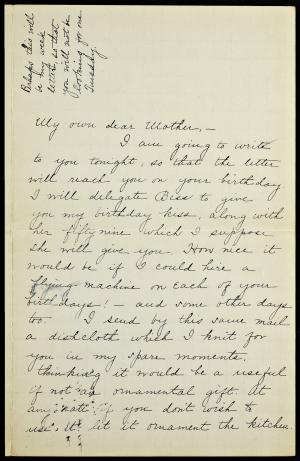 Perhaps this will
be my week
letter, so that
you will not be
looking for one
Tuesday.
My own dear Mother,—
I am going to write
to you tonight, so that the letter
will reach you on your birthday.
I will delegate Bess to give
you my birthday kiss, along with
her fifty nine which I suppose
she will give you. How nice it
would be if I could hire a
flying machine on each of your
birthdays! — and some other days
too. I send by this same mail
a dishcloth which I knit for
you in my spare moments,
thinking it would be a useful
if not an ornamental gift. At
any rate, if you don't wish to
use it, let it ornament the kitchen